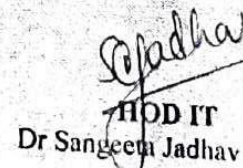 SCJadhav
HOD IT
Dr Sangeeta Jadhav